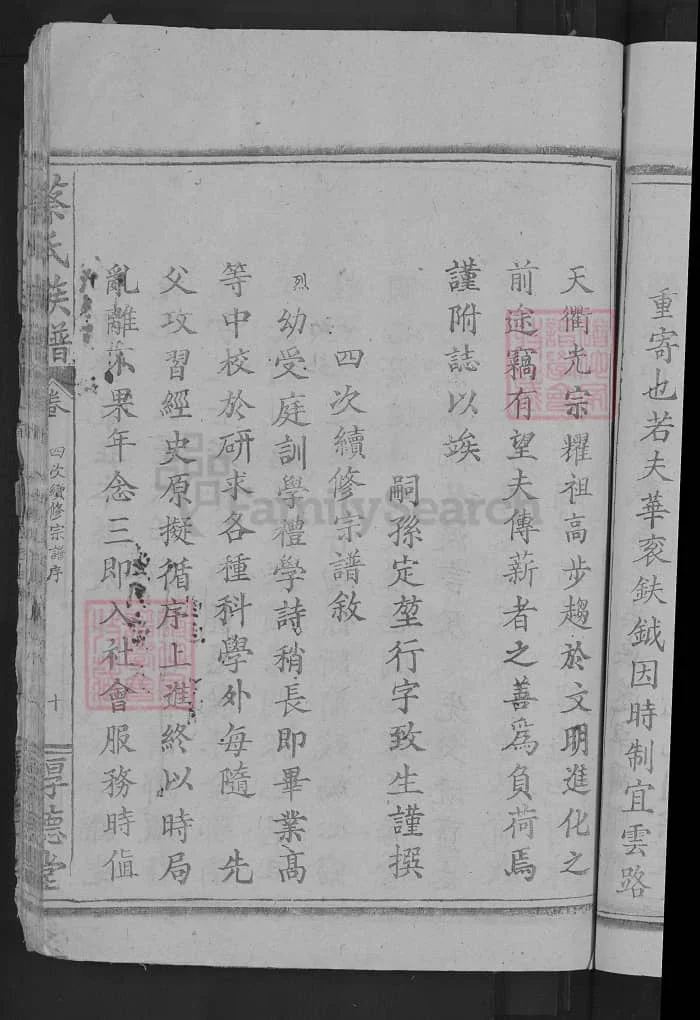 重寄也若夫華衮鈇鉞因時制宜雲路
天衢光宗耀祖高步趨於文明進化之
前途竊有望夫傳薪者之善為負荷焉
謹附誌以竢
嗣孫定堃行字致生謹撰
四次續修宗譜敘
烈幼受庭訓學禮學詩稍長即畢業高
等中校於研求各種科學外每隨 先
父攻習經史原擬循序上進終以時局
亂離不果年念三即入社會服務時值
蔡氏族譜 卷 四次續修宗譜序 十 厚德堂
FamilySearch